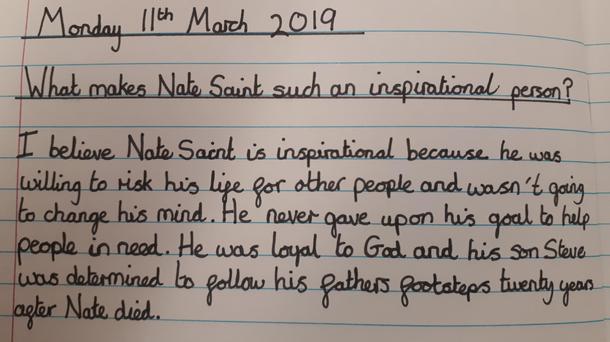 Monday 11th March 2019
What makes Nate Saint such an inspirational person?
I believe Nate Saint is inspirational because he was
willing to risk his life for other people and wasn't going
to change his mind. He never gave upon his goal to help
people in need. He was loyal to God and his son Steve
was determined to follow his fathers footsteps twenty years
after Nate died.